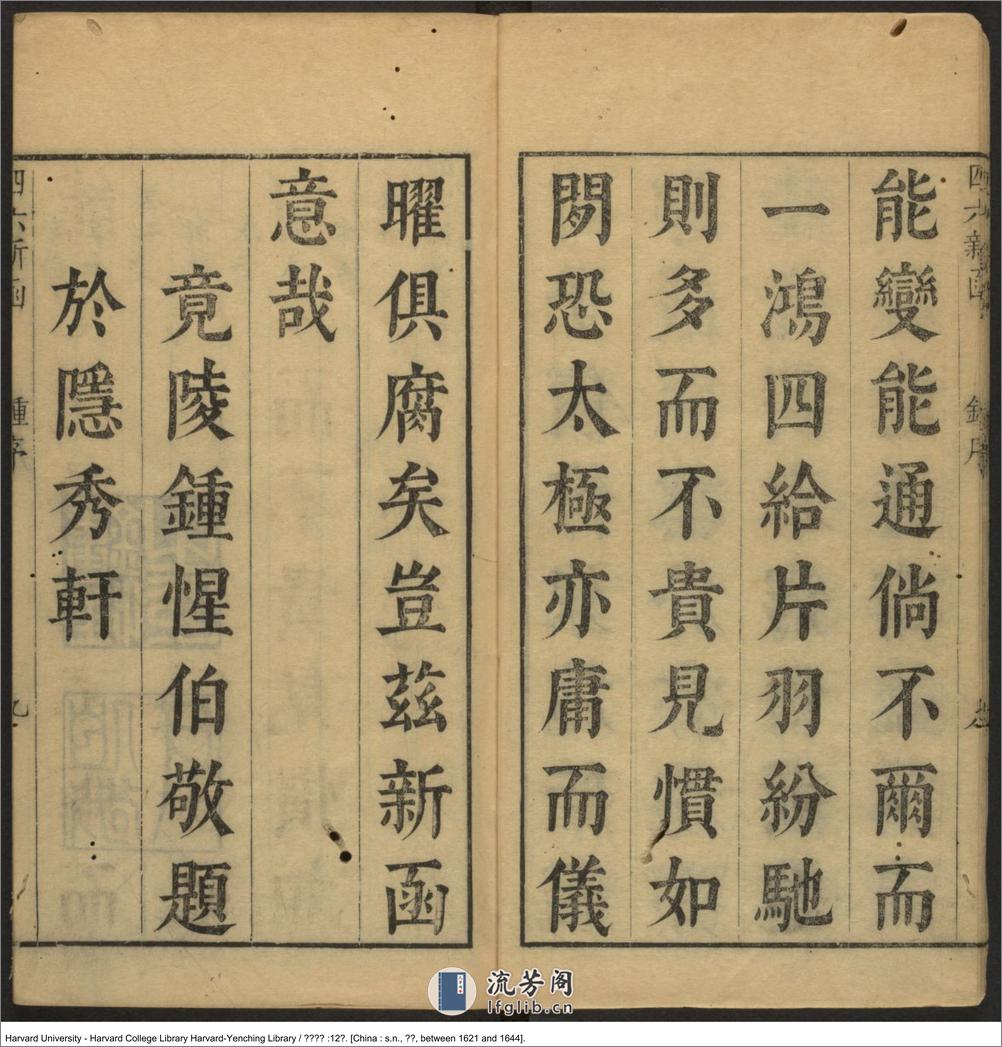 能變能通倘不爾而
一鴻四給片羽紛馳
則多而不貴見慣如
閱恐太極亦庸而儀
曜俱腐矣豈茲新函
意哉
竟陵鍾惺伯敬題
於隱秀軒
四六新函
鍾序
九
流芳阁
lfglib.cn
Harvard University - Harvard College Library Harvard-Yenching Library / ???? :12?. [China : s.n., ??, between 1621 and 1644].